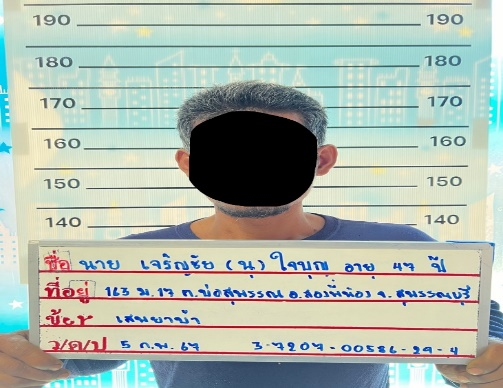 190 190
180 180
170 170
160 160
150 150
140 140
ชื่อ นาย เจริญชัย (นุ) ใจบุญ อายุ 47 ปี
ที่อยู่ 163 ม.17 ต.บ่อสุพรรณ อ.สองพี่น้อง จ.สุพรรณบุรี
ข้อหา เสพยาบ้า
ว/ด/ป 5 ก.พ. 67 3-7207-00586-29-4